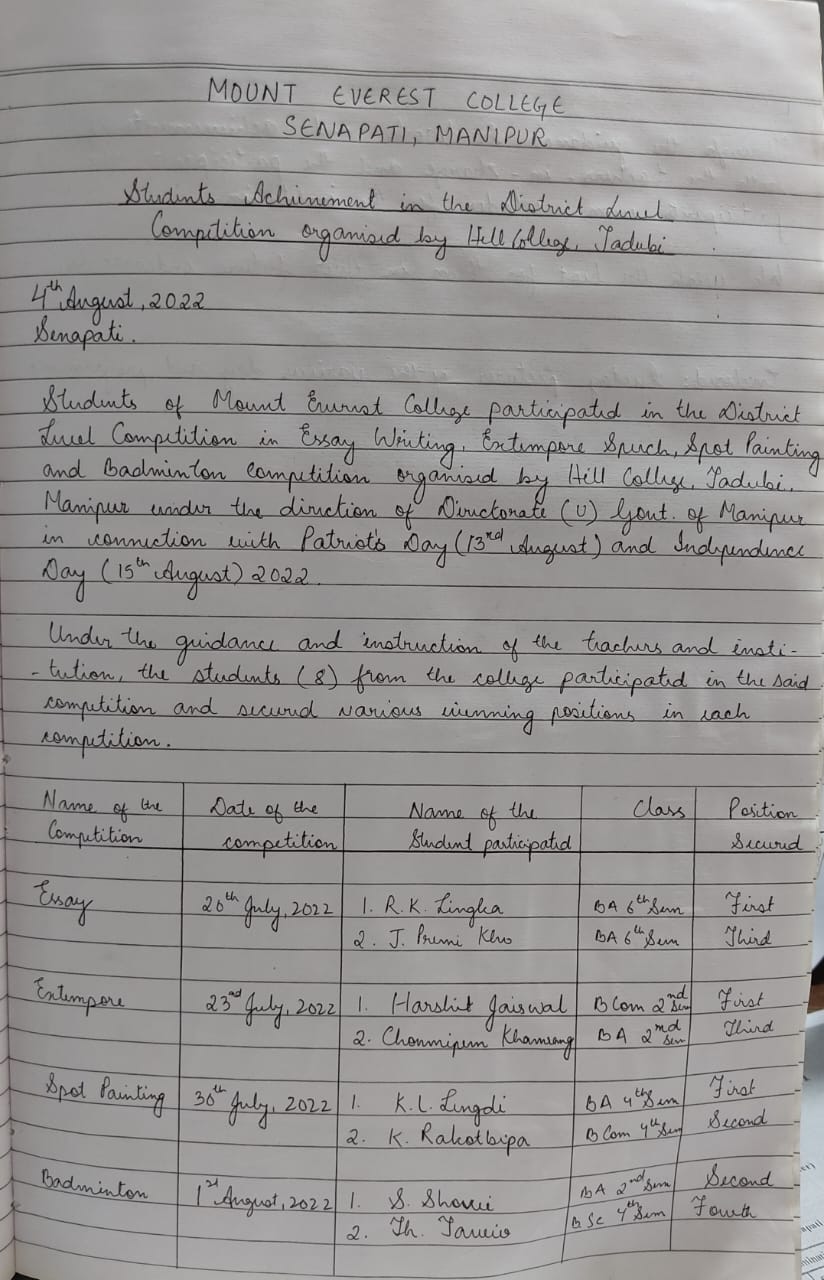 MOUNT EVEREST COLLEGE
SENAPATI, MANIPUR
Students Achievement in the District Level
Competition organised by Hill College, Tadubi
4th August, 2022
Senapati.
Students of Mount Everest College participated in the District
Level Competition in Essay Writing, Extempore Speech, Spot Painting
and Badminton Competition organised by Hill College, Tadubi,
Manipur under the direction of Directorate (U) Govt. of Manipur
in connection with Patriot's Day (13rd August) and Independence
Day (15th August) 2022.
Under the guidance and instruction of the teachers and insti-
-tution, the students (8) from the college participated in the said
competition and secured various winning positions in each
competition.
Name of the Competition | Date of the competition | Name of the Student participated | Class | Position Secured
Essay | 20th July, 2022 | 1. R.K. Lingka | BA 6th Sem | First
2. J. Premi Kho | BA 6th Sem | Third
Extempore | 23nd July, 2022 | 1. Harshit Jaiswal | B Com 2nd Sem | First
2. Chonmipem Khamrang | BA 2nd Sem | Third
Spot Painting | 30th July, 2022 | 1. K.L. Lingdi | BA 4th Sem | First
2. K. Rakotbipa | B Com 4th Sem | Second
Badminton | 1st August, 2022 | 1. S. | BA 2nd Sem | Second
2. Th. | B Sc 4th Sem | Fourth